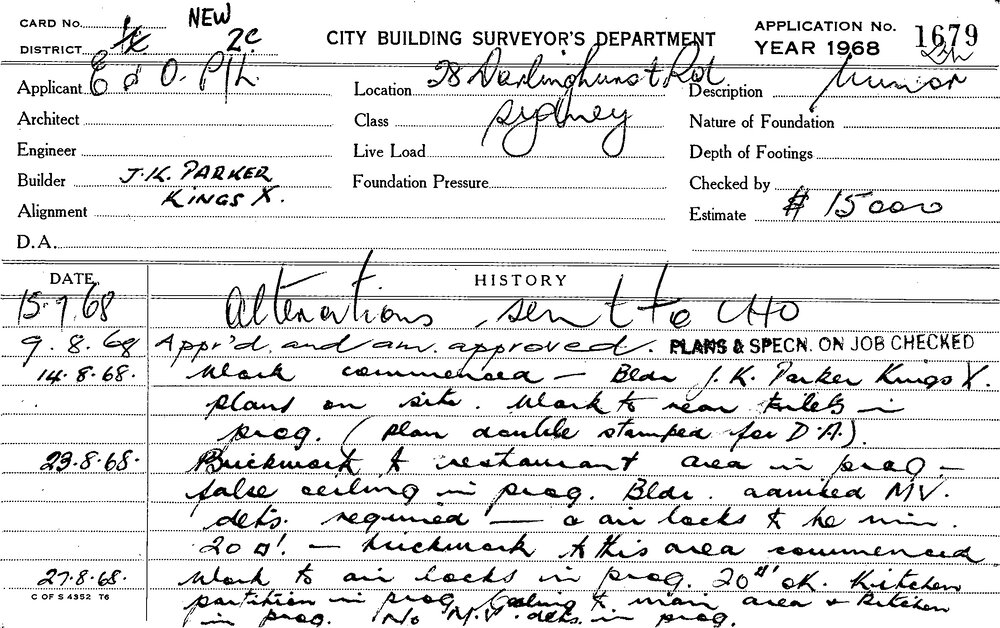 CARD No. NEW
DISTRICT 2c
CITY BUILDING SURVEYOR'S DEPARTMENT
APPLICATION No. 1679
YEAR 1968
Applicant E & O. P/L.
Location 28 Darlinghurst Rd
Description
Architect
Class Sydney
Nature of Foundation
Engineer
Live Load
Depth of Footings
Builder J.K. PARKER
Foundation Pressure
Checked by
KINGS X.
Alignment
Estimate $ 15000
D.A.
DATE HISTORY
15.7.68 Alterations sent to CHO
9.8.68 Appr'd. and am. approved. PLANS & SPECN. ON JOB CHECKED
14.8.68. Work commenced – Bldr J.K. Parker Kings X.
plans on site. Work to rear toilets in
prog. (plan double stamped for D.A.)
23.8.68. Brickwork to restaurant area in prog –
false ceiling in prog. Bldr. advised MV.
dets. required – & air locks to be min.
20 □'. – brickwork to this area commenced
27.8.68. Work to air locks in prog. 20 □' OK. Kitchen
partition in prog. Ceiling to main area & kitchen
in prog. No M.V. dets. in prog.
C OF S 4352 76